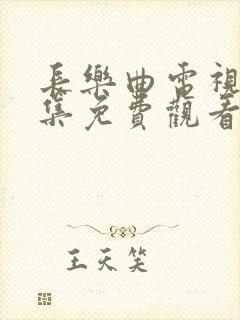 長樂曲電視
集免費觀看
王天笑